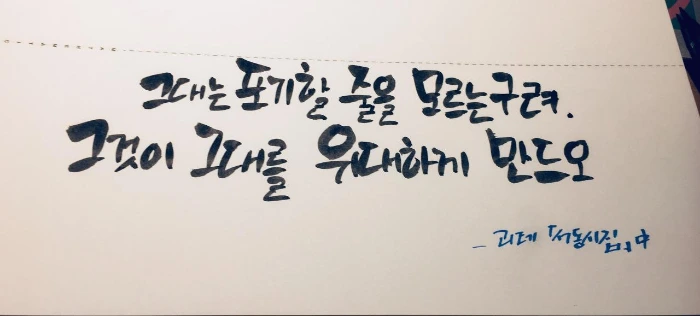 그대는 포기할 줄을 모르는구려.
그것이 그대를 위대하게 만드오
- 괴테 「서동시집」中